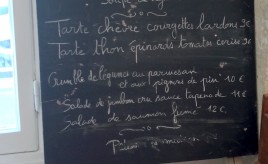 Tarte chèvre courgettes lardons 9€
Tarte thon épinards tomates cerises 9€
Crumble de légumes au parmesan
et aux pignons de pin 10 €
Salade de jambon cru sauce tapenade 11€
Salade de saumon fumé 12€